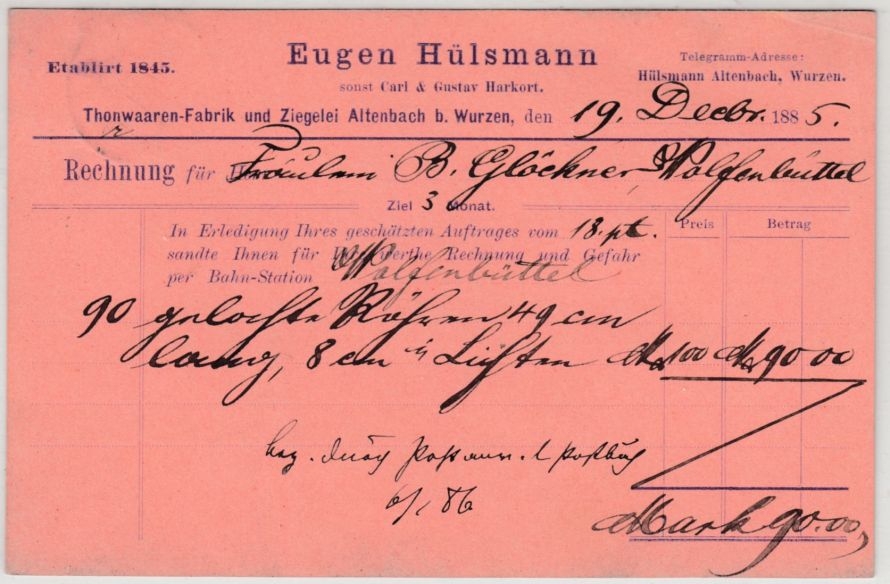 Etablirt 1845.
Eugen Hülsmann
sonst Carl & Gustav Harkort.
Telegramm-Adresse:
Hülsmann Altenbach, Wurzen.
Thonwaaren-Fabrik und Ziegelei Altenbach b. Wurzen, den 19. Decbr. 1885.
Rechnung für Fräulein B. Glöckner, Wolfenbüttel
Ziel 3 Monat.
In Erledigung Ihres geschätzten Auftrages vom 18. pt.
sandte Ihnen für Ihre werthe Rechnung und Gefahr
per Bahn-Station Wolfenbüttel
Preis
Betrag
90 gelochte Röhren 49 cm
lang, 8 cm i. Lichten Mk 100 Mk 90.00
bez. durch Postanw. l. Postbuch
6/1 86
Mark 90.00,